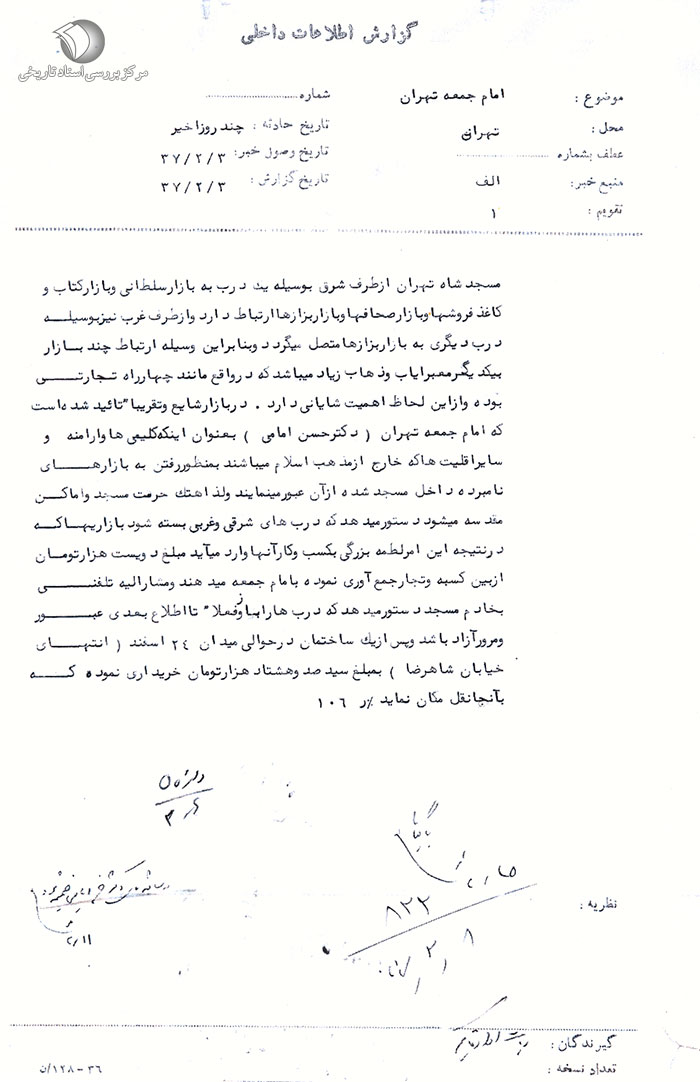 گزارش اطلاعات داخلی
مرکز بررسی اسناد تاریخی
موضوع : امام جمعه تهران شماره
محل : تهران تاریخ حادثه : چند روز اخیر
عطف بشماره تاریخ وصول خبر : ۳۷/۲/۳
منبع خبر : الف تاریخ گزارش : ۳۷/۲/۳
تقویم : ۱
مسجد شاه تهران از طرف شرق بوسیله یک درب به بازار سلطانی و بازار کتاب و
کاغذ فروشها و بازار صحافها و بازار بزازها ارتباط دارد و از طرف غرب نیز بوسیلـــه
درب دیگری به بازار بزازها متصل میگردد و بنابراین وسیله ارتباط چند بازار
بیکدیگر معبر ایاب و ذهاب زیاد میباشد که در واقع مانند چهارراه تجارتـــی
بوده و از این لحاظ اهمیت شایانی دارد . در بازار شایع و تقریبا" تائید شده است
که امام جمعه تهران ( دکتر حسن امامی ) بعنوان اینکه کلیمی ها و ارامنه و
سایر اقلیت ها که خارج از مذهب اسلام میباشند بمنظور رفتن به بازارهـــای
نامبرده داخل مسجد شده از آن عبور مینمایند ولذا هتك حرمت مسجد و اماکــن
مقدسه میشود دستور میدهد که درب های شرقی و غربی بسته شود بازاریها کــه
در نتیجه این امر لطمه بزرگی بکسب و کار آنها وارد میآید مبلغ دویست هزار تومان
از بین کسبه و تجار جمع آوری نموده با امام جمعه میدهند و مشارالیه تلفنـــی
بخادم مسجد دستور میدهد که درب ها را باز و فعلا" تا اطلاع بعدی عبـــور
و مرور آزاد باشد و پس از یك ساختمان در حوالی میدان ۲۴ اسفند ( انتهـــای
خیابان شاهرضا ) بمبلغ سیصد و هشتاد هزار تومان خریداری نموده کــــه
بآنجا نقل مکان نماید ۱۰۶
بایگانی
نظریه :
۸۲۲
گیرندگان :
تعداد نسخه :
۳۶ - ۱۲۸/ن